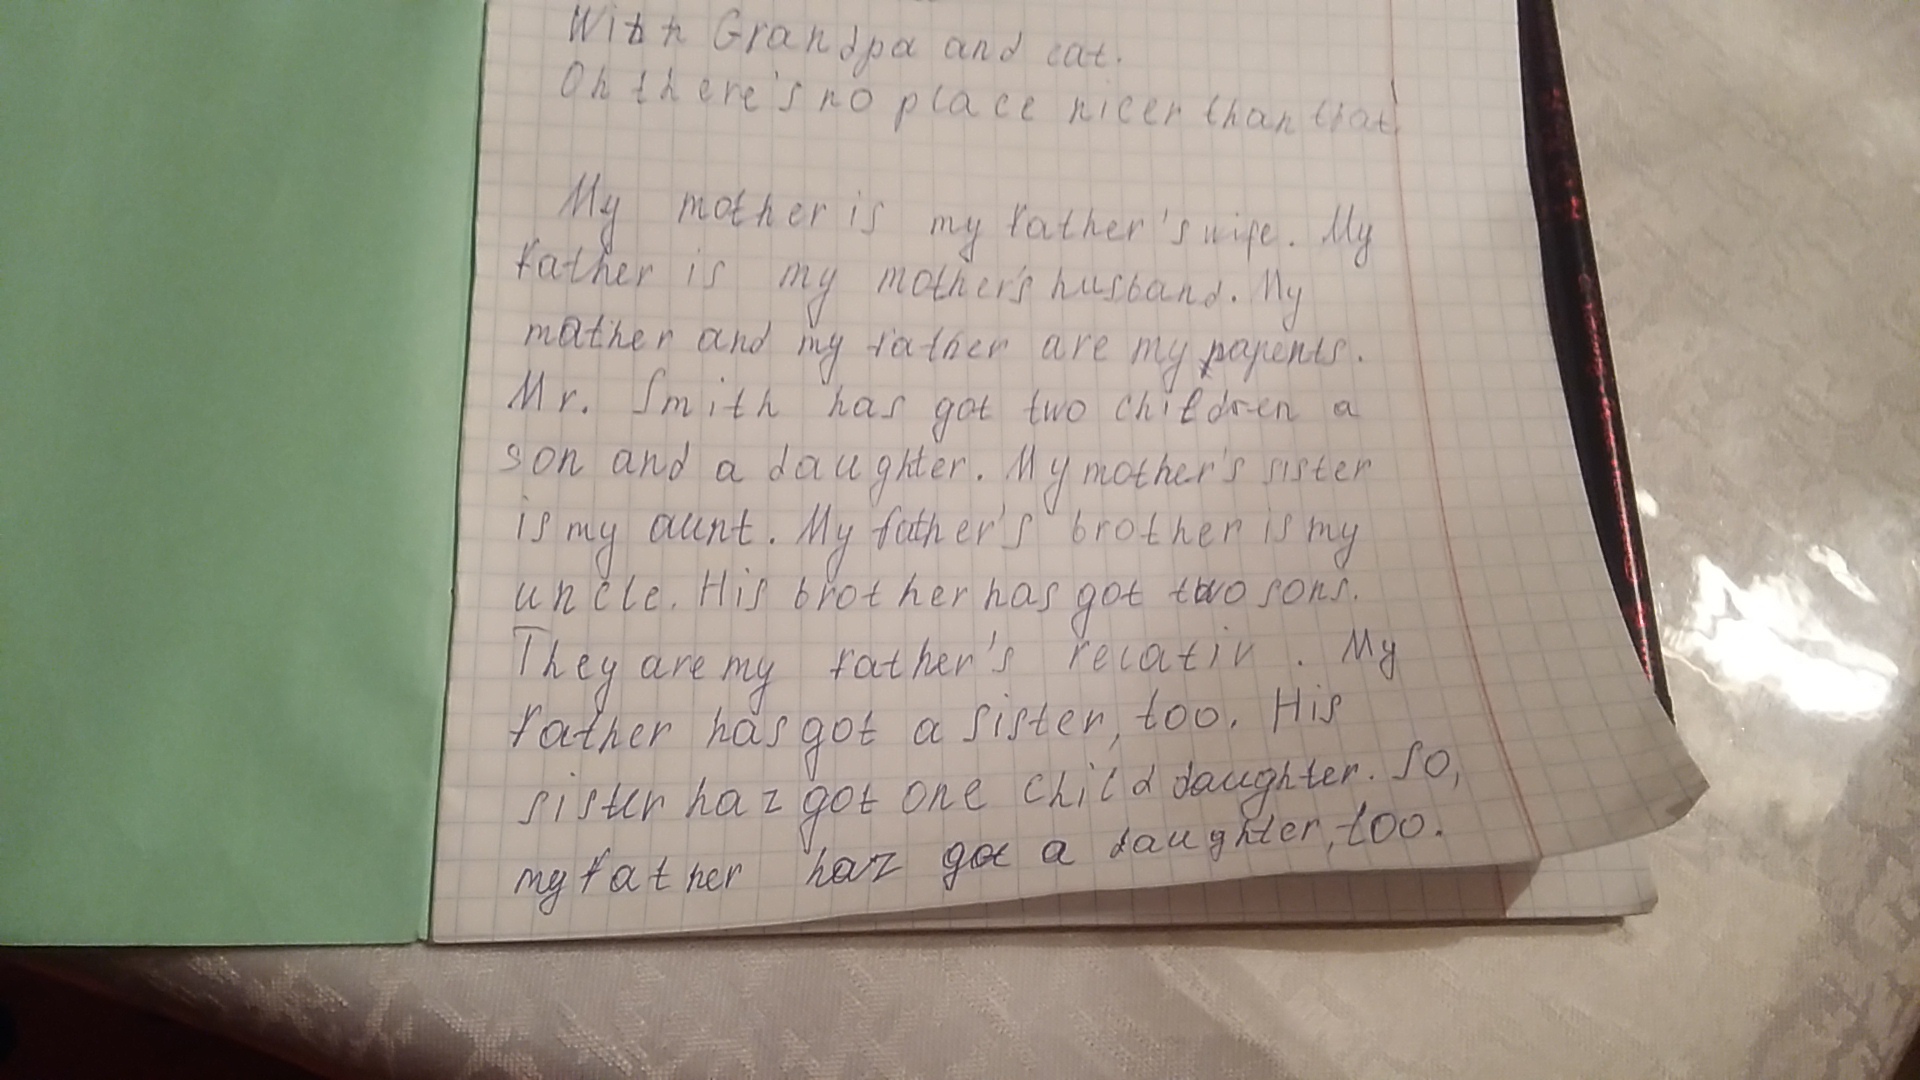 With Grandpa and cat.
Oh there's no place nicer than that.
My mother is my father's wife. My
father is my mother's husband. My
mather and my father are my parents.
Mr. Smith has got two children a
son and a daughter. My mother's sister
is my aunt. My father's brother is my
uncle. His brother has got two sons.
They are my father's relativ. My
father has got a sister, too. His
sister haz got one child daughter. So,
my father haz got a daughter, too.